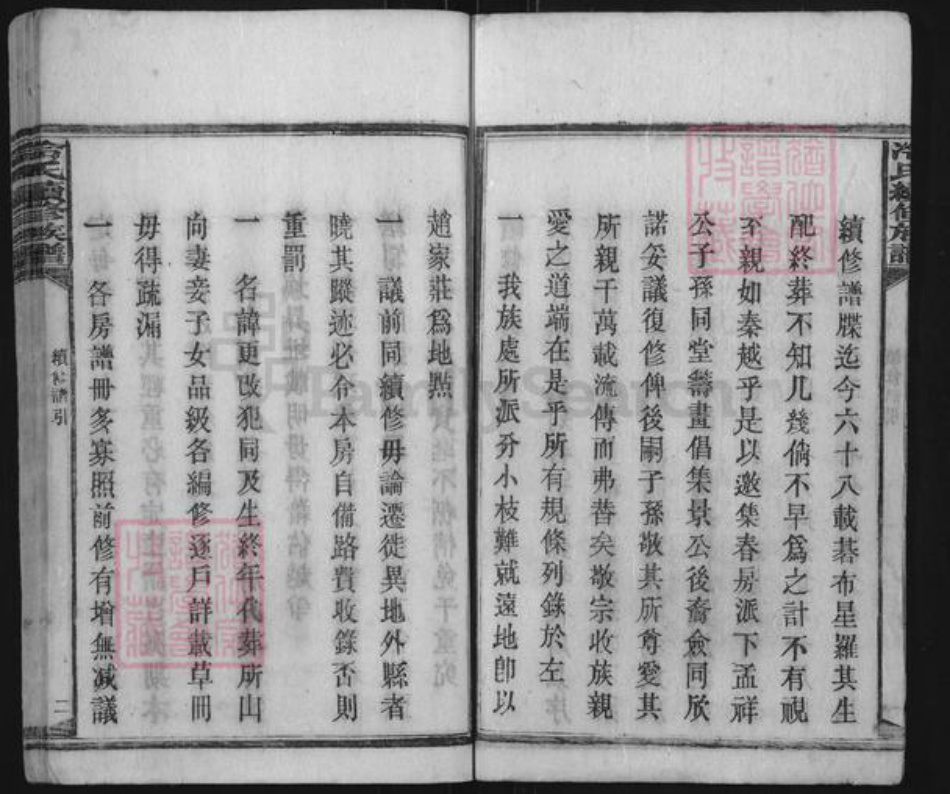 冷氏續修族譜
續修譜牒迄今六十八載碁布星羅其生
配終葬不知几幾倘不早爲之計不有視
至親如秦越乎是以邀集春房派下孟祥
公子孫同堂籌畫倡集景公後裔僉同欣
諾妥議復修俾後嗣子孫敬其所尊愛其
所親千萬載流傳而弗替矣敬宗收族親
愛之道端在是乎所有規條列錄於左
一 我族處所派分小枝難就遠地卽以
趙家莊爲地點
一 議前同續修毋論遷徙異地外縣者
曉其蹤迹必令本房自備路費收錄否則
重罰
一 名諱更改犯同及生終年代葬所山
向妻妾子女品級各編修逐戶詳載草冊
毋得疏漏
一 各房譜冊多寡照前修有增無減議
冷氏續修族譜
續修譜引
二
FamilySearch